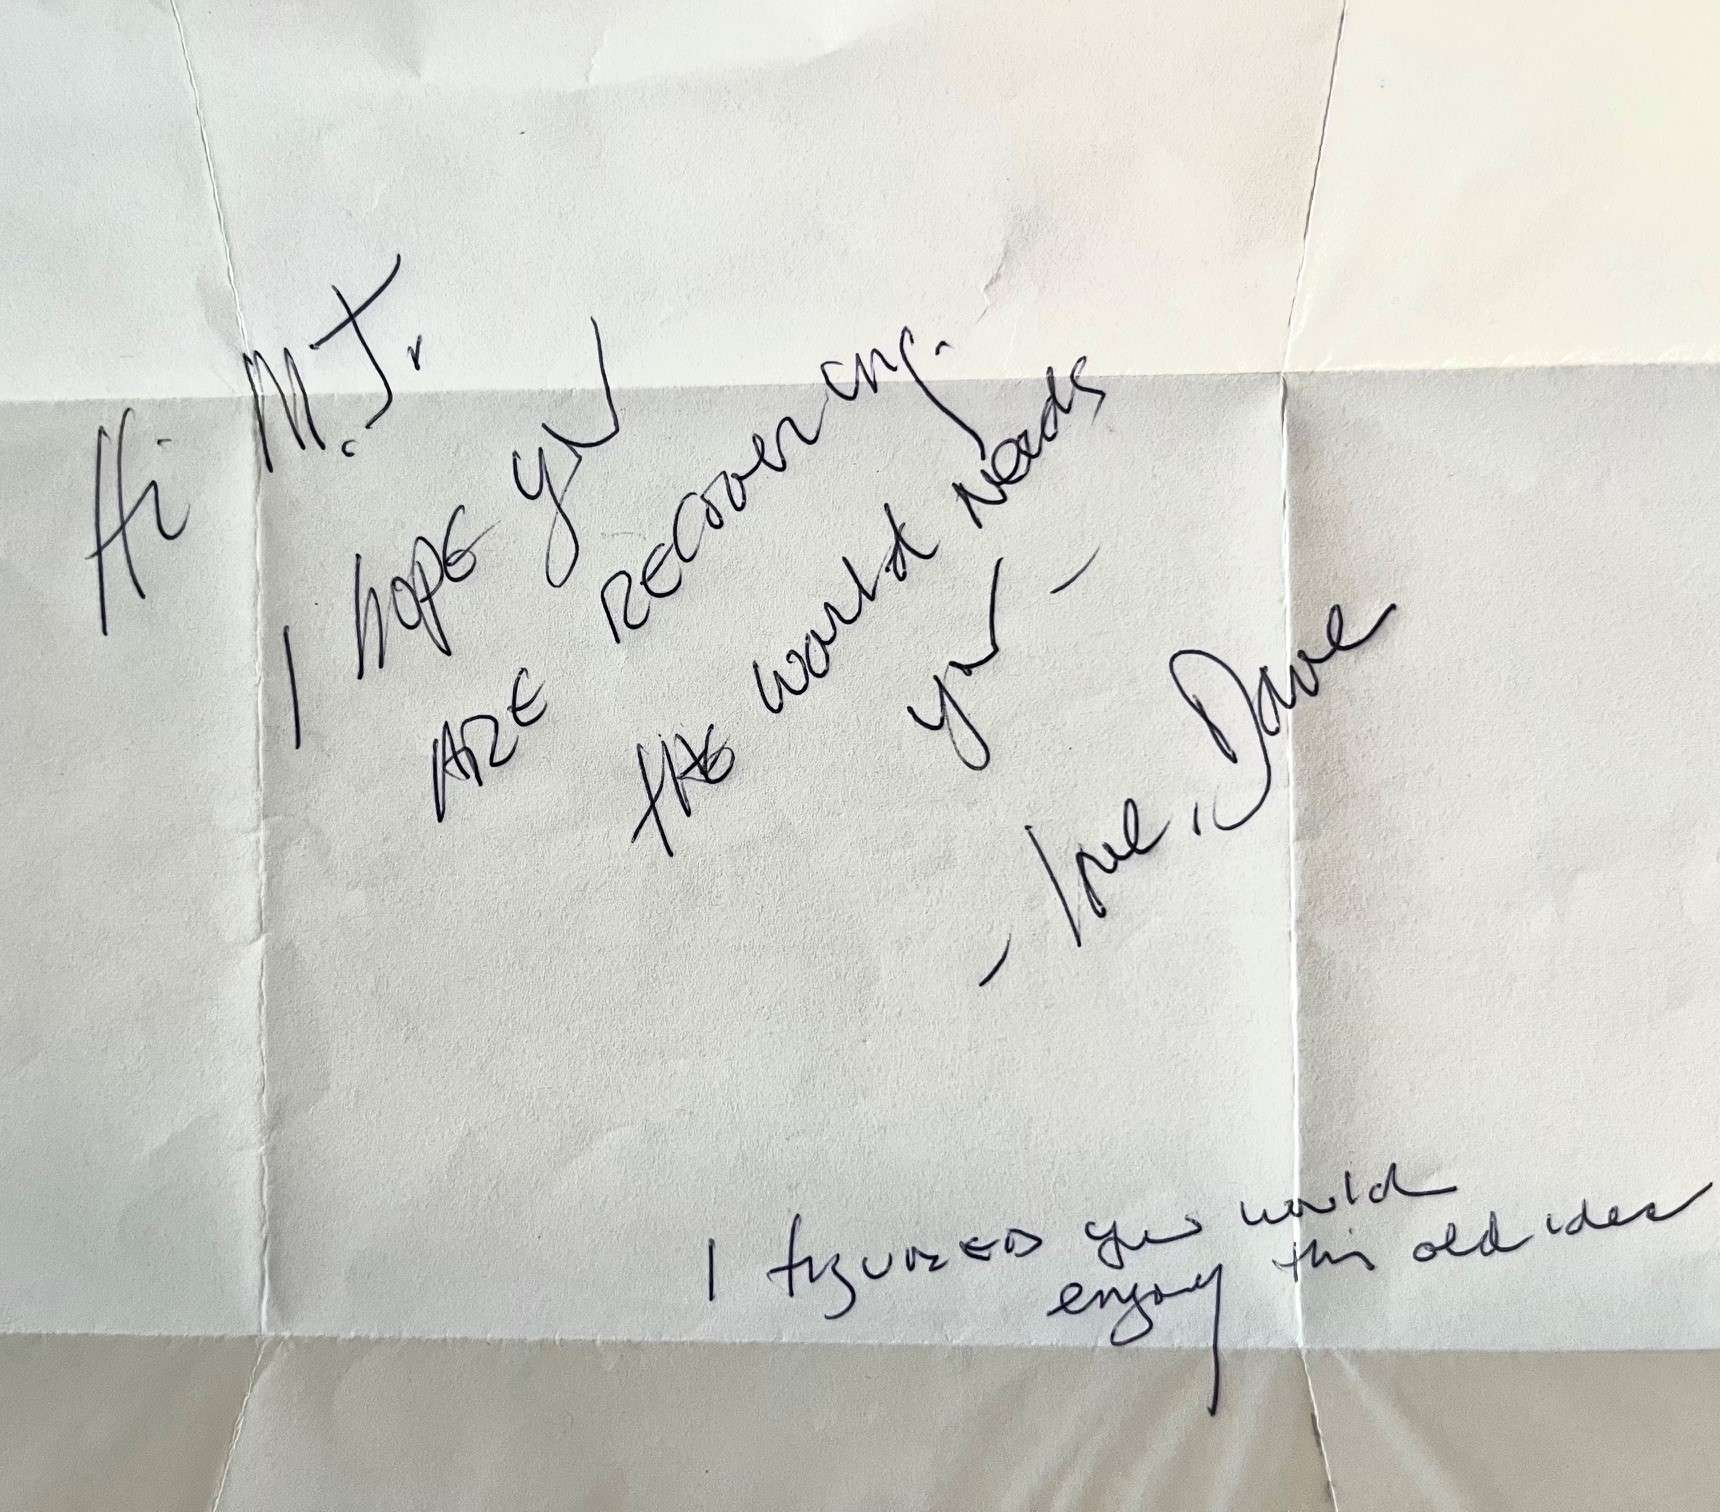 Hi M.J.
I hope you
ARE RECOVERING.
the world needs
you -
- love, Dave
I figureD you would
enjoy this old idea